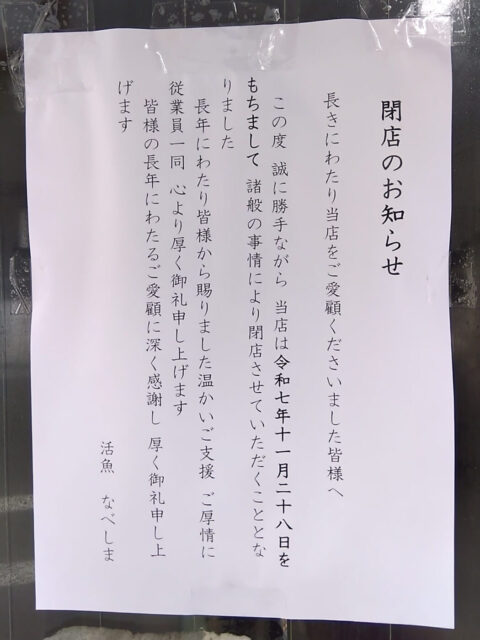 閉店のお知らせ
長きにわたり当店をご愛顧くださいました皆様へ
この度 誠に勝手ながら 当店は令和七年十一月二十八日を
もちまして 諸般の事情により閉店させていただくこととな
りました
長年にわたり皆様から賜りました温かいご支援 ご厚情に
従業員一同 心より厚く御礼申し上げます
皆様の長年にわたるご愛顧に深く感謝し 厚く御礼申し上
げます
活魚 なべしま